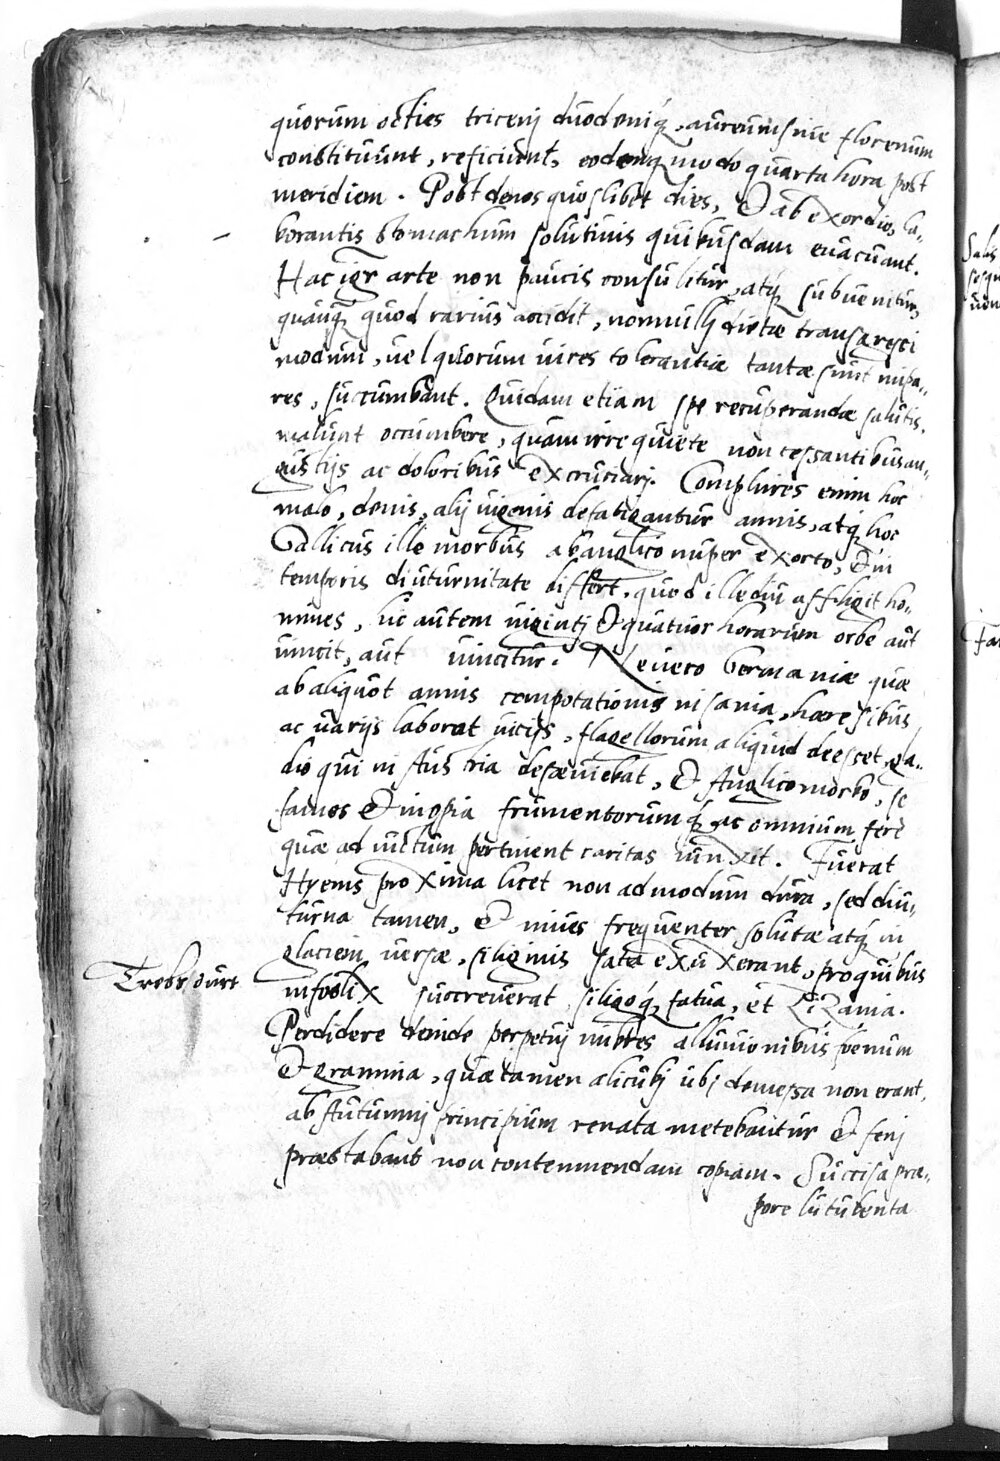 quorum octies triceni duodeniq́, aureum siue florenum
constituunt, reficiunt, eodemq modo quarta hora post
meridiem. Post denos quoslibet dies, & ab exordio, la-
borantis stomachum solutiuis quibusdam euacuant.
Hac igr arte non paucis consulitur, atq́ subuenitur,
quanq̃ quod rarius accidit, nonnullj dictæ
modum, uel quorum uires tolerantiæ tantæ sunt impa-
res, succumbant. Quidam etiam spe recuperandæ salutis,
malunt occumbere, quam irrequiete non cessantibus an-
gustijs ac doloribus excruciarj. Complures enim hoc
malo, denis, alij uigenis defatigantur annis, atq́ hoc
Gallicus ille morbus ab anglico nuper exorto, & in
temporis diuturnitate differt, quod ille diu affligit ho-
mines, hic autem uigintj & quatuor horarum orbe aut
uincit, aut uincitur. Ne uero Germaniæ quæ
ab aliquot annis compotationis insania, hæresibus
ac uarijs laborat uitijs, flagellorum aliquid deesset, gla-
dio qui in Austria desæuiebat, & Anglico morbo, se
fames & inopia frumentorum q́ ac omnium ferè
quæ ad uictum pertinent caritas iunxit. Fuerat
Hyems proxima licet non admodum dura, sed diu-
turna tamen, & niues frequenter solutæ atq́ in
glaciem uersæ, siliginis sata exuxerant, pro quibus
infoelix succreuerat siligoq́, fatua, et Zizania.
Trebs ourt
Perdidere deinde perpetuj imbres alluuionibus foenum
& gramina, quæ tamen alicubj ubj demessa non erant,
ab Autumnj principium renata metebantur & fenj
præstabant non contemnendam copiam. Succisa præ-
pore lutulenta
Salis
sesqu
uen
Fa